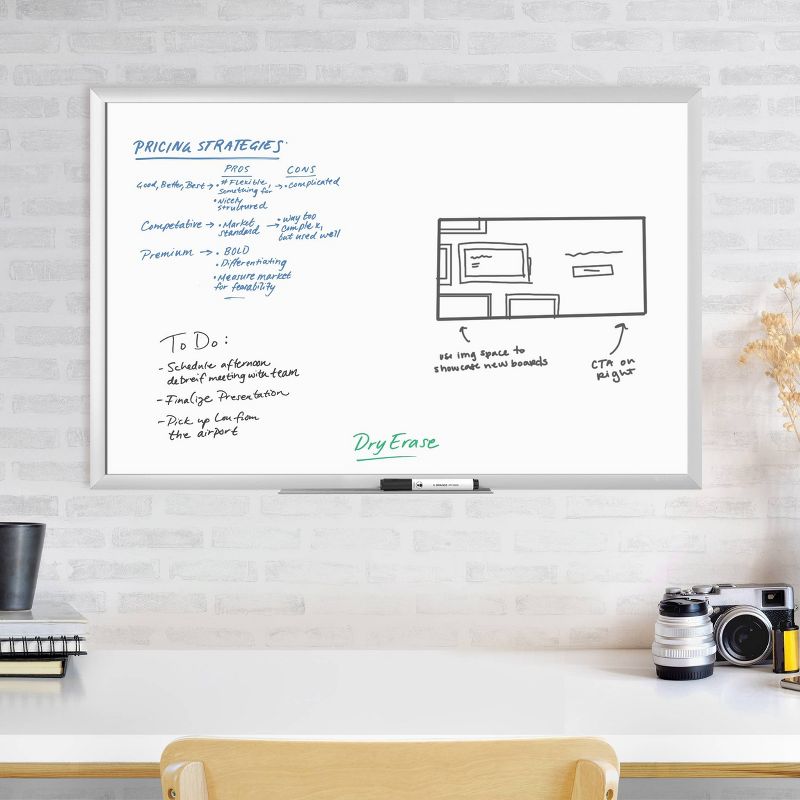 PRICING STRATEGIES
PROS CONS
Good, Better, Best → • # Flexible, → • complicated
something for
• Nicely
structured
Competative → • Market → • way too
standard complex,
but used well
Premium → • BOLD
• Differentiating
• Measure market
for fearability
To Do:
- Schedule afternoon
debreif meeting with team
- Finalize Presentation
- Pick up Lou from
the airport
use img space to
showcase new boards
CTA on
Right
Dry Erase